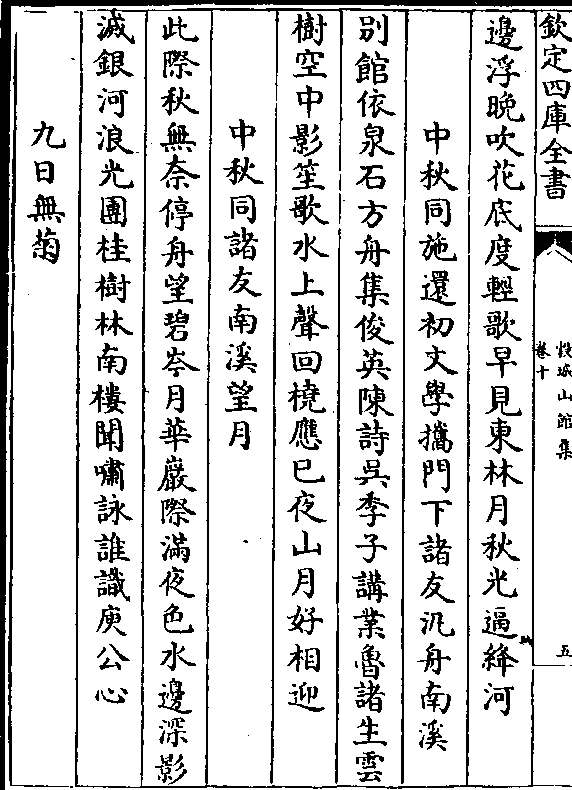 欽定四庫全書
穀城山館集
卷十
五
邊浮晚吹花底度輕歌早見東林月秋光逼絳河
中秋同施還初文學攜門下諸友汎舟南溪
別館依泉石方舟集俊英陳詩吳季子講業魯諸生雲
樹空中影笙歌水上聲回橈應已夜山月好相迎
中秋同諸友南溪望月
此際秋無奈停舟望碧岑月華巖際滿夜色水邊深影
滅銀河浪光團桂樹林南樓聞嘯詠誰識庾公心
九日無菊